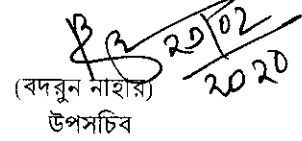 ২৩/০২
২০২০
(বদরুন নাহার)
উপসচিব